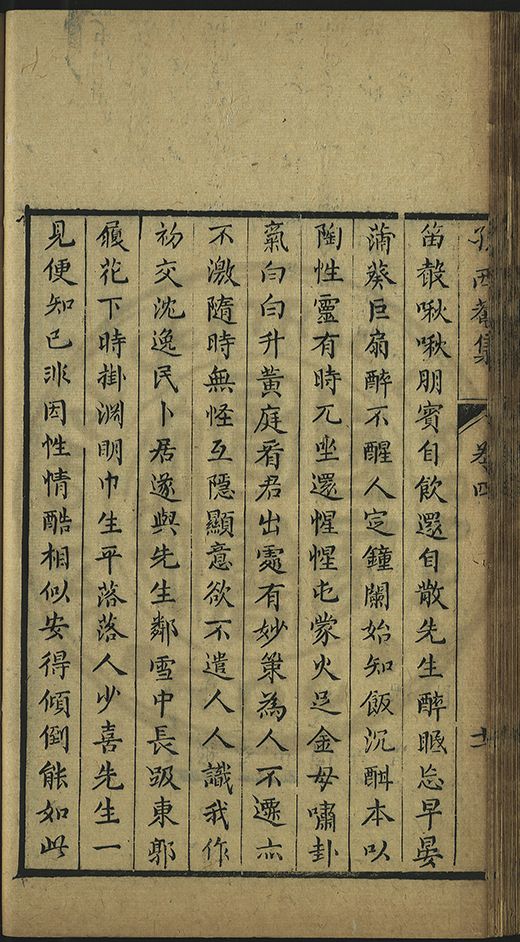 西菴集 卷四
笛殽啾啾朋賓自飲還自散先生醉眠忘早晏
蒲葵巨扇醉不醒人定鐘闌始知飯沉酣本以
陶性靈有時兀坐還惺惺屯蒙火足金母嘯卦
氣白白升黃庭看君出處有妙策為人不遷亦
不激隨時無怪互隱顯意欲不遣人人識我作
初交沈逸民卜居遂與先生鄰雪中長趿東郭
履花下時掛淵明巾生平落落人少喜先生一
見便知己非因性情酷相似安得傾倒能如此